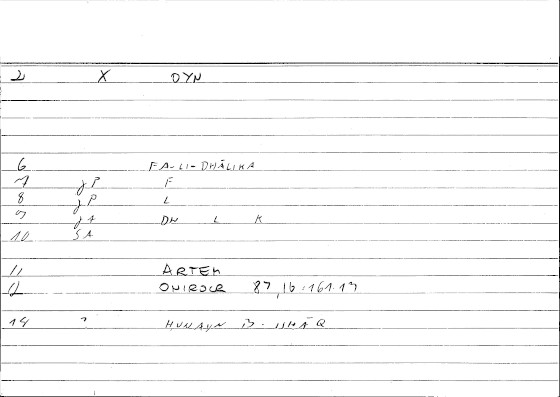 2 X DYN
6 FA-LI-DHĀLIKA
7 JP F
8 JP L
9 JA DH L K
10 SA
11 ARTEM
12 ONIROCR 87,16:161.13
14 ? HUNAYN B. ISHĀQ